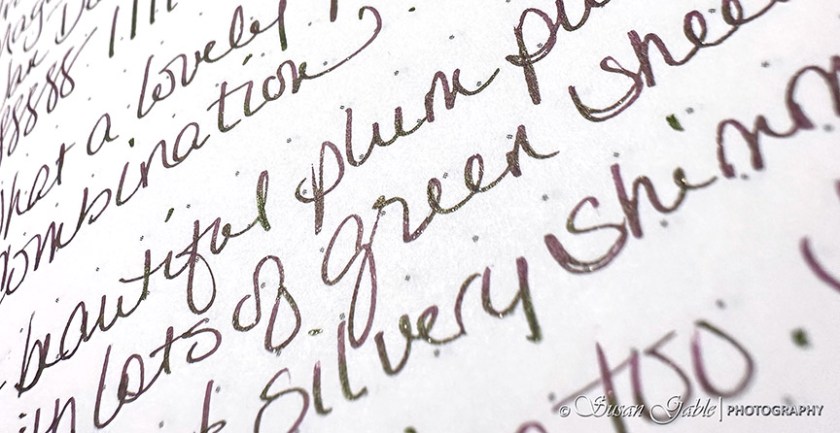 88888 1111
What a lovely
combination
beautiful plum pu
with lots of green sheen
silvery shimm
too.
© Susan Gable | PHOTOGRAPHY